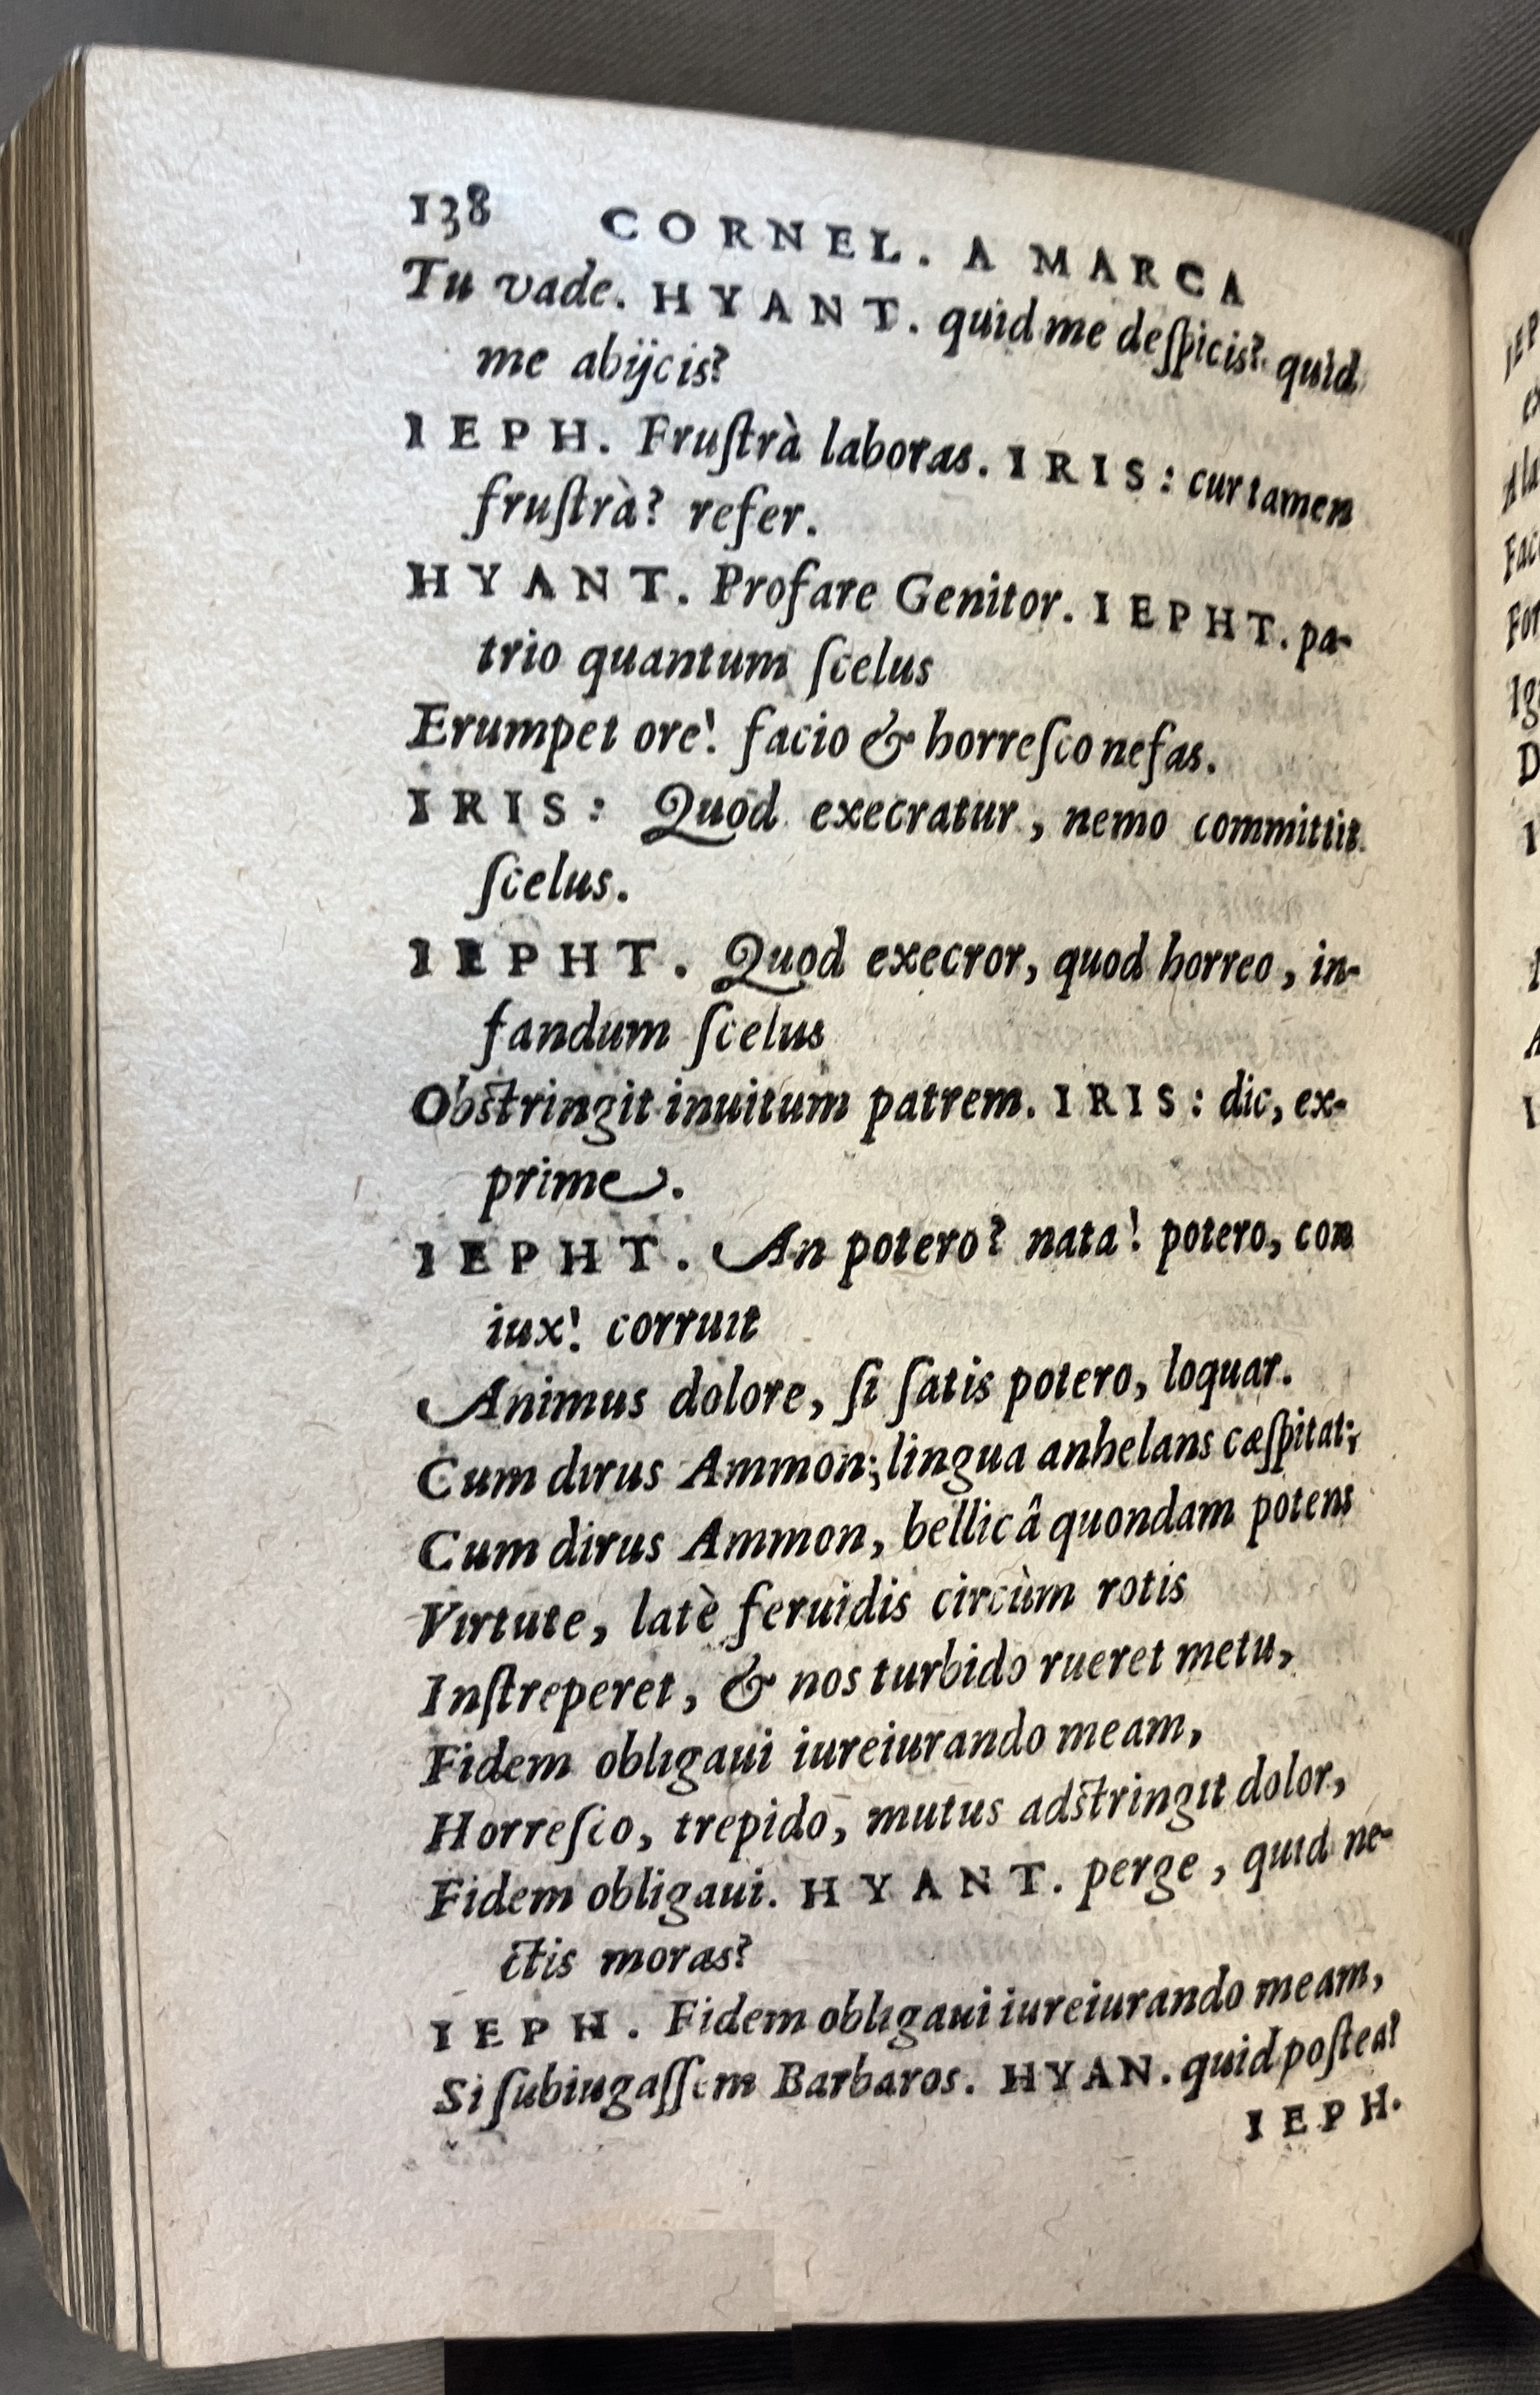 138 CORNEL. A MARCA
Tu vade. HYANT. quid me deſpicis? quid
me abijcis?
IEPH. Fruſtrà laboras. IRIS: cur tamen
fruſtrà? refer.
HYANT. Profare Genitor. IEPHT. pa-
trio quantum ſcelus
Erumpet ore! facio & horreſco nefas.
IRIS: Quod execratur, nemo committit
ſcelus.
IEPHT. Quod execror, quod horreo, in-
fandum ſcelus
Obſtringit inuitum patrem. IRIS: dic, ex-
prime.
IEPHT. An potero? nata! potero, con
iux! corruit
Animus dolore, ſi ſatis potero, loquar.
Cum dirus Ammon; lingua anhelans cæſpitat;
Cum dirus Ammon, bellicâ quondam potens
Virtute, latè feruidis circùm rotis
Inſtreperet, & nos turbido rueret metu,
Fidem obligaui iureiurando meam,
Horreſco, trepido, mutus adſtringit dolor,
Fidem obligaui. HYANT. perge, quid ne-
ctis moras?
IEPH. Fidem obligaui iureiurando meam,
Si ſubiugaſſem Barbaros. HYAN. quid poſtea?
IEPH.